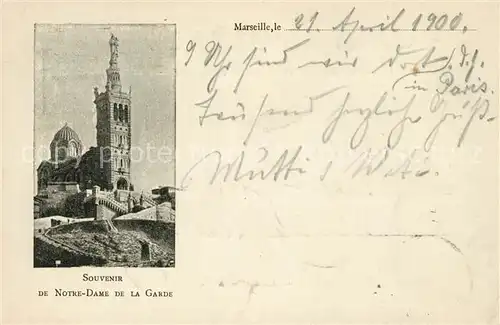 Marseille, le 21. April 1900.
9 Uhr sind wir dort d.h.
in Paris.
Tausend herzliche Grüße
Mutti &
Souvenir
de Notre-Dame de la Garde